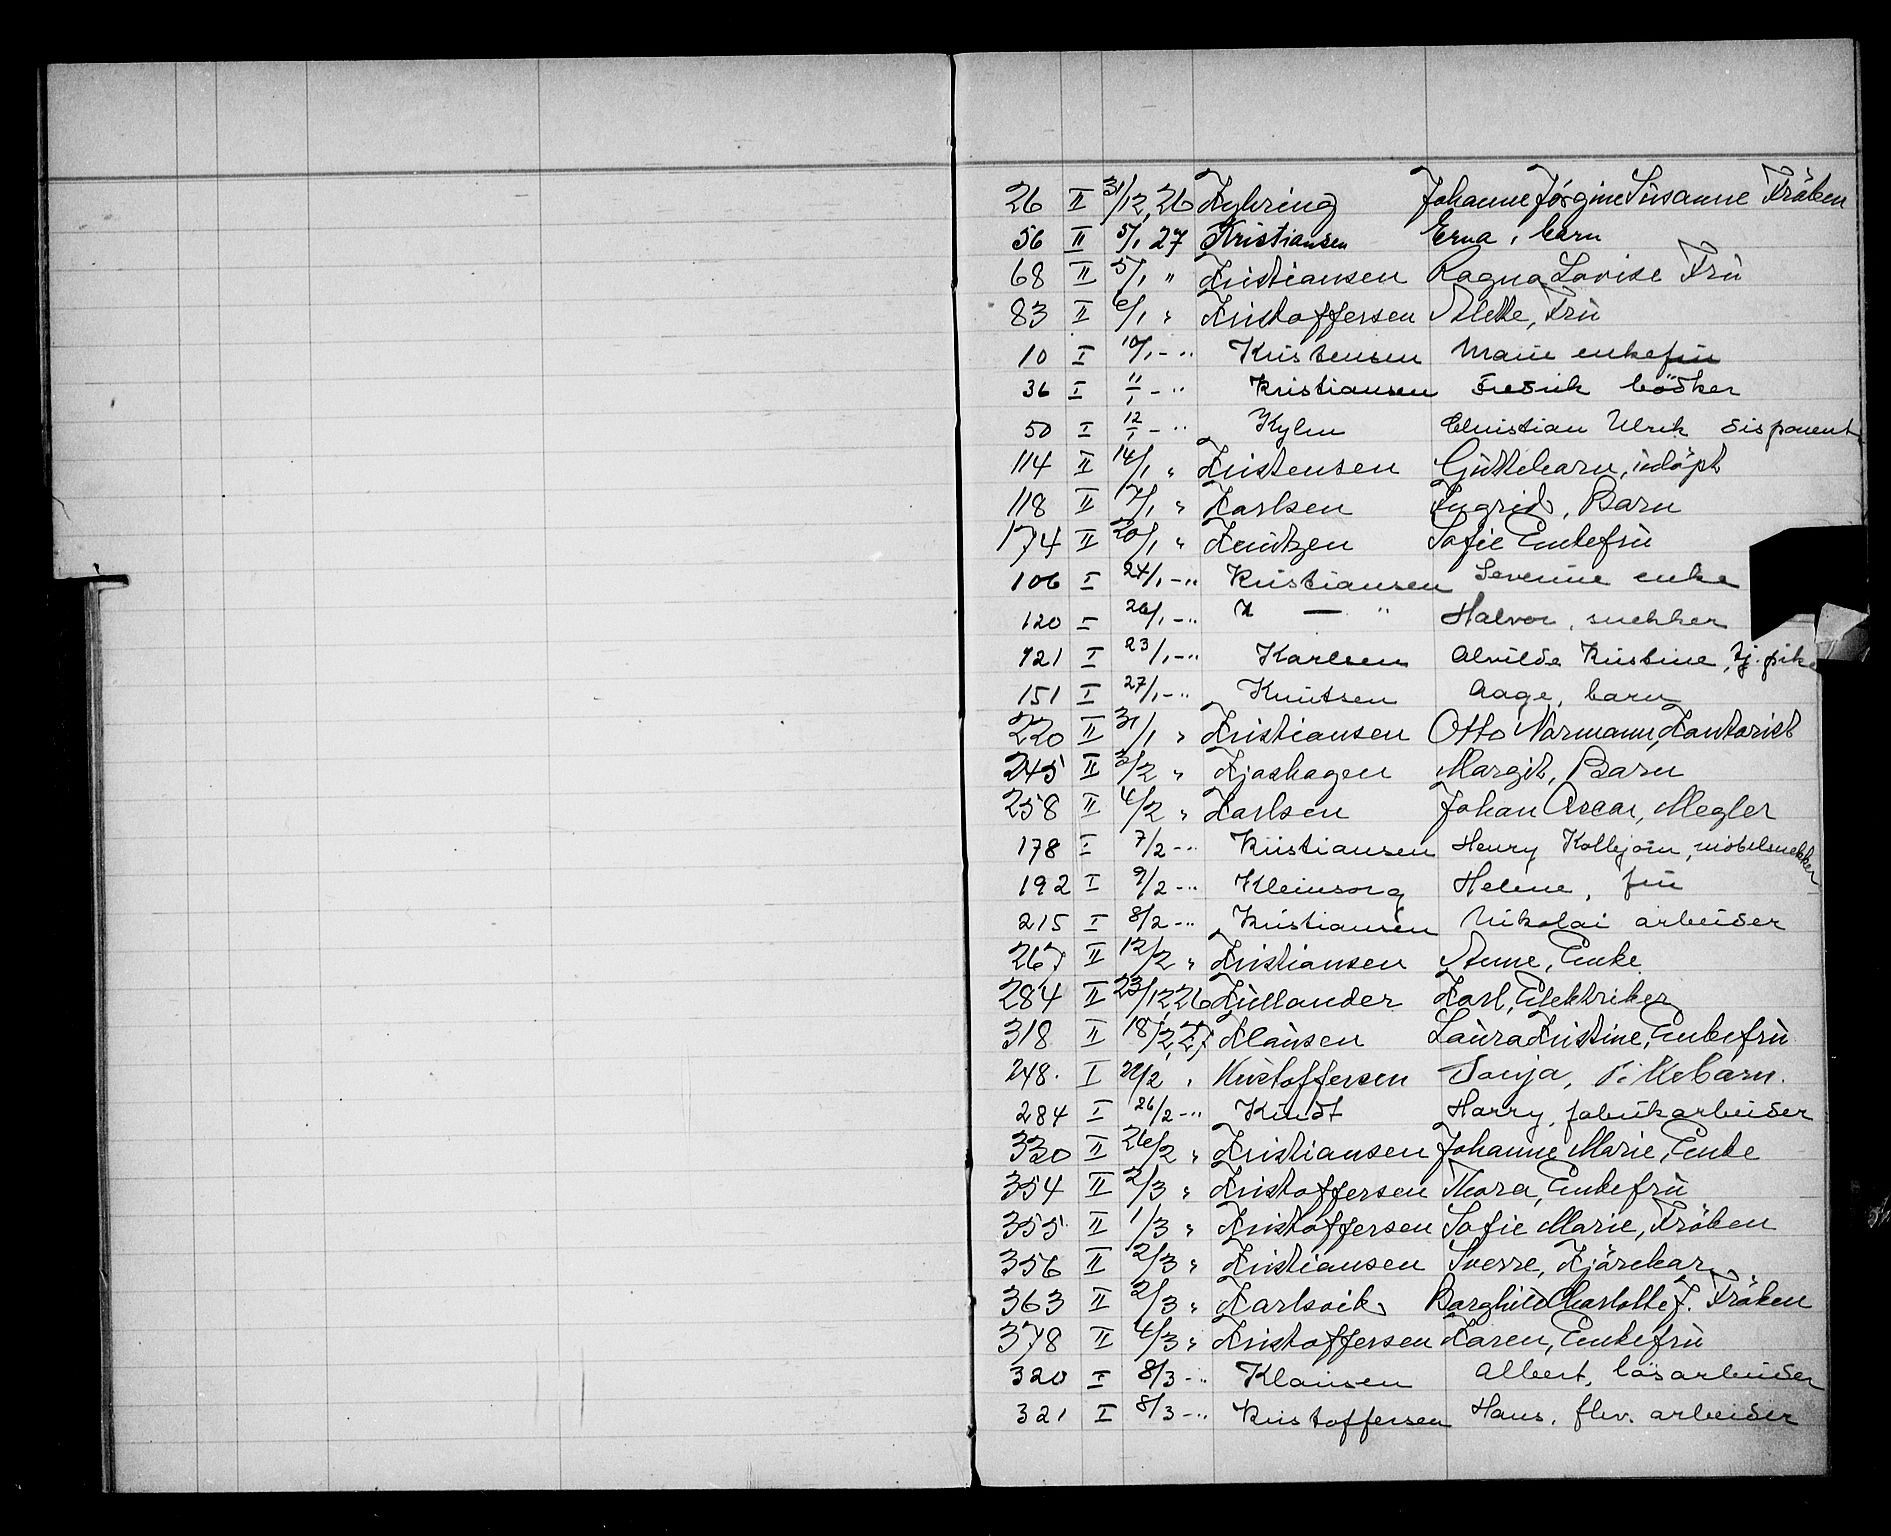 26 II 31/12,26 Kyhring Johanne Jörgine Susanne Fröken
56 II 5/1 27 Kristiansen Erna, barn
68 II 5/1 " Kristiansen Ragna Lovise Frù
83 II 6/1 " Kristoffersen Alette, Frù
10 I 10/1 - " Kristensen Marie enkefru
36 I 11/1 - " Kristiansen Fredrik bödker
50 I 12/1 - " Kylen Christian Ulrik disponent
114 II 14/1 " Kristensen Gùttebarn, ùdöpt
118 II 17/1 " Karlsen Ingrid, Barn
174 II 20/1 " Knùtzen Sofie Enkefrù
106 I 24/1 - " Kristiansen Severine enke
120 I 26/1 - " K — " Halvor, snekker
121 I 23/1 - " Karlsen Alvilde Kristine, tj. pike
151 I 27/1 - " Knutsen Aage, barn
220 II 31/1 " Kristiansen Otto Normann, Kontorist
245 II 3/2 " Kjoshagen Margit, Barn
258 II 4/2 " Karlsen Johan Oscar, Megler
178 I 7/2 - " Kristiansen Henry Kolbjörn, möbelsnekker
192 I 9/2 - " Kleinsorg Helene, fru
215 I 8/2 - " Kristiansen Nikolai arbeider
267 II 12/2 " Kristiansen Anne, Enke
284 II 23/12,26 Kùllander Karl, Elektriker
318 II 18/2,27 Klaùsen Laùra Kristine, Enkefrù
248. I 22/2 " Kristoffersen Sonja, Pikebarn.
284 I 26/2 - " Kindt Harry, fabrikarbeider
330 II 26/2 " Kristiansen Johanne Marie, Enke
354 II 2/3 " Kristoffersen Thora, Enkefrù
355 II 1/3 " Kristoffersen Sofie Marie, Fröken
356 II 2/3 " Kristiansen Sverre, Kjörekar
363 II 2/3 " Karlsvik Borghild Charlotte J. Fröken
378 II 4/3 " Kristoffersen Karen, Enkefrù
320 I 8/3 - " Klausen Albert, lösarbeider
321 I 8/3 - " Kristoffersen Hans, fhv. arbeider